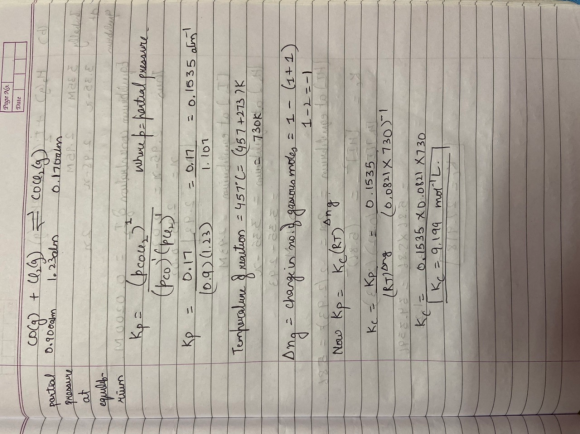 Page No.
Date
CO(g) + Cl₂(g) ⇌ COCl₂(g)
partial pressure at equilib-rium 0.900atm 1.23atm 0.170atm
Kp = (pCOCl₂)² / (pCO)(pCl₂) where p = partial pressure.
Kp = 0.17 / (0.9)(1.23) = 0.17 / 1.107 = 0.1535 atm⁻¹
Temperature of reaction = 457°C = (457+273)K
= 730K
Δng = change in no. of gaseous moles = 1 - (1+1)
1-2 = -1
Now Kp = Kc(RT)^Δng
Kc = Kp / (RT)^Δng = 0.1535 / (0.0821 × 730)⁻¹
Kc = 0.1535 × 0.0821 × 730
Kc = 9.199 mol⁻¹ L.